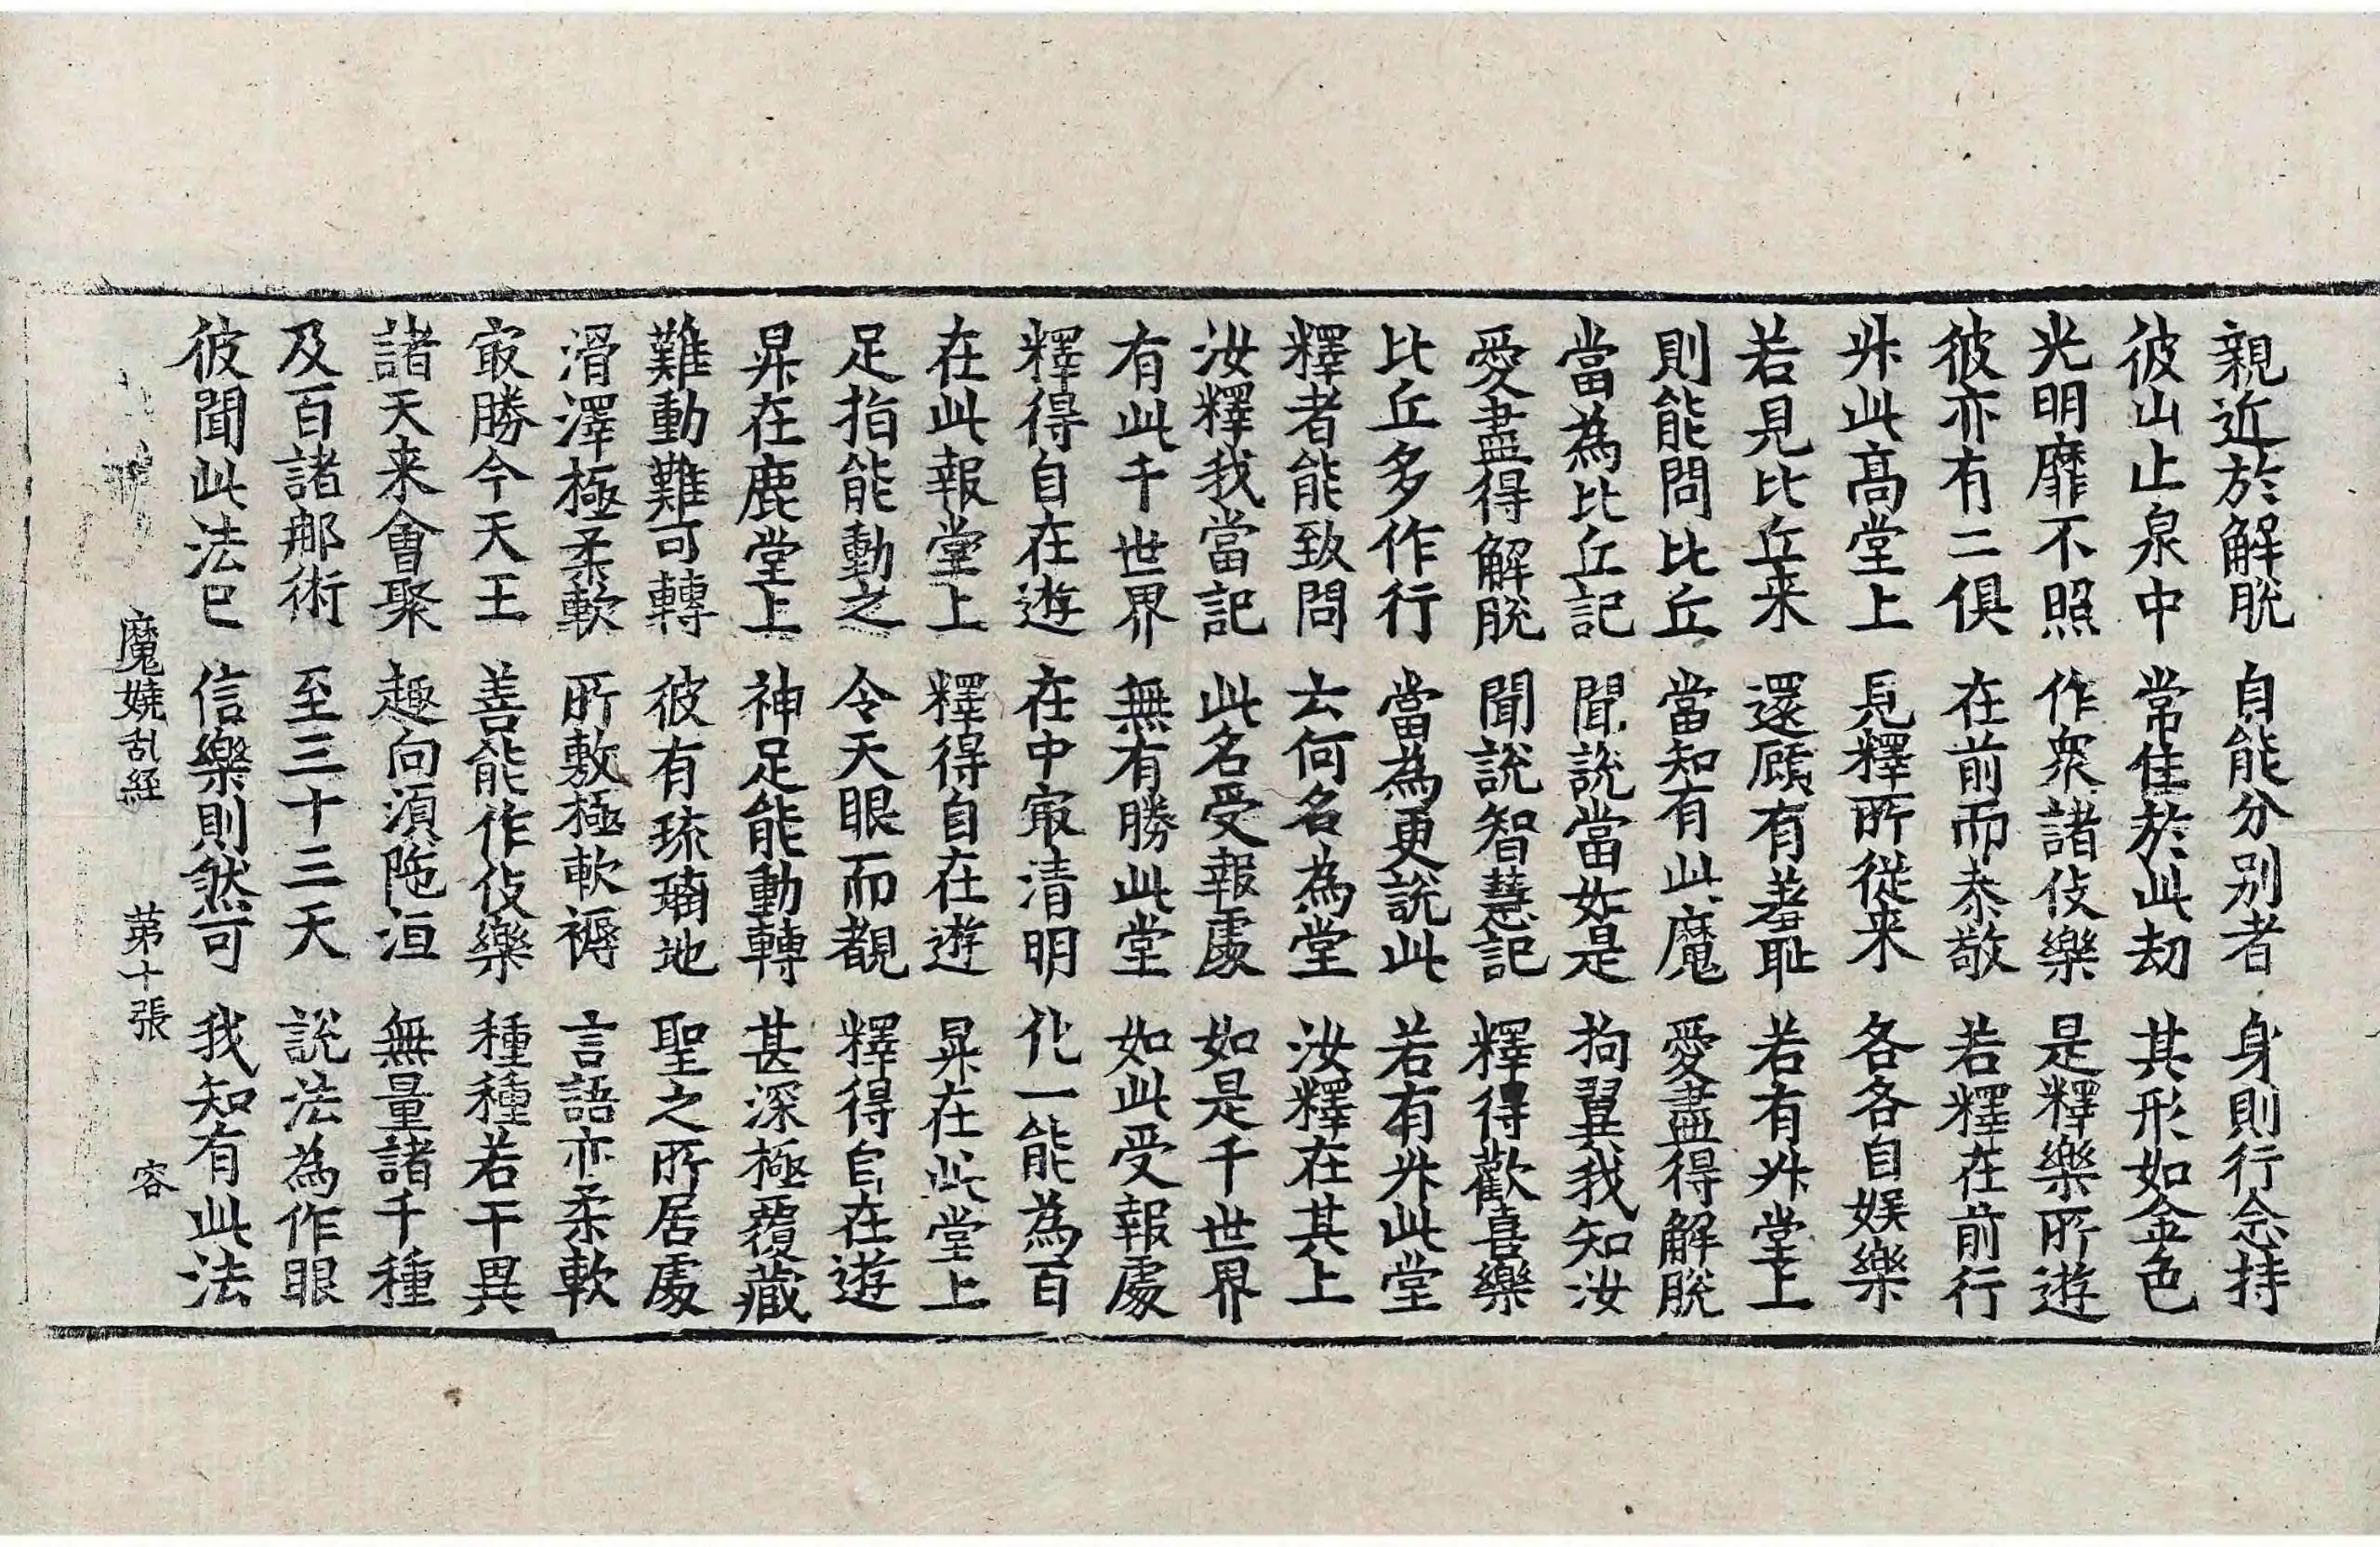 親近於解脫 自能分別者 身則行念持
彼山止泉中 常住於此劫 其形如金色
光明靡不照 作衆諸伎樂 是釋樂所遊
彼亦有二俱 在前而恭敬 若釋在前行
昇此高堂上 見釋所從来 各各自娛樂
若見比丘来 還顧有羞恥 若有昇堂上
則能問比丘 當知有此魔 愛盡得解脫
當為比丘記 聞說當如是 拘翼我知汝
愛盡得解脫 聞說智慧記 釋得歡喜樂
比丘多作行 當為更說此 若有昇此堂
釋者能致問 云何名為堂 汝釋在其上
汝釋我當記 此名受報處 如是千世界
有此千世界 無有勝此堂 如此受報處
釋得自在遊 在中㝡清明 化一能為百
在此報堂上 釋得自在遊 昇在此堂上
足指能動之 令天眼而覩 釋得自在遊
昇在鹿堂上 神足能動轉 甚深極覆藏
難動難可轉 彼有琉璃地 聖之所居處
滑澤極柔軟 所敷極軟褥 言語亦柔軟
㝡勝今天王 善能作伎樂 種種若干異
諸天来會聚 趣向須陁洹 無量諸千種
及百諸那術 至三十三天 說法為作眼
彼聞此法已 信樂則然可 我知有此法
魔嬈乱経 苐十張 容